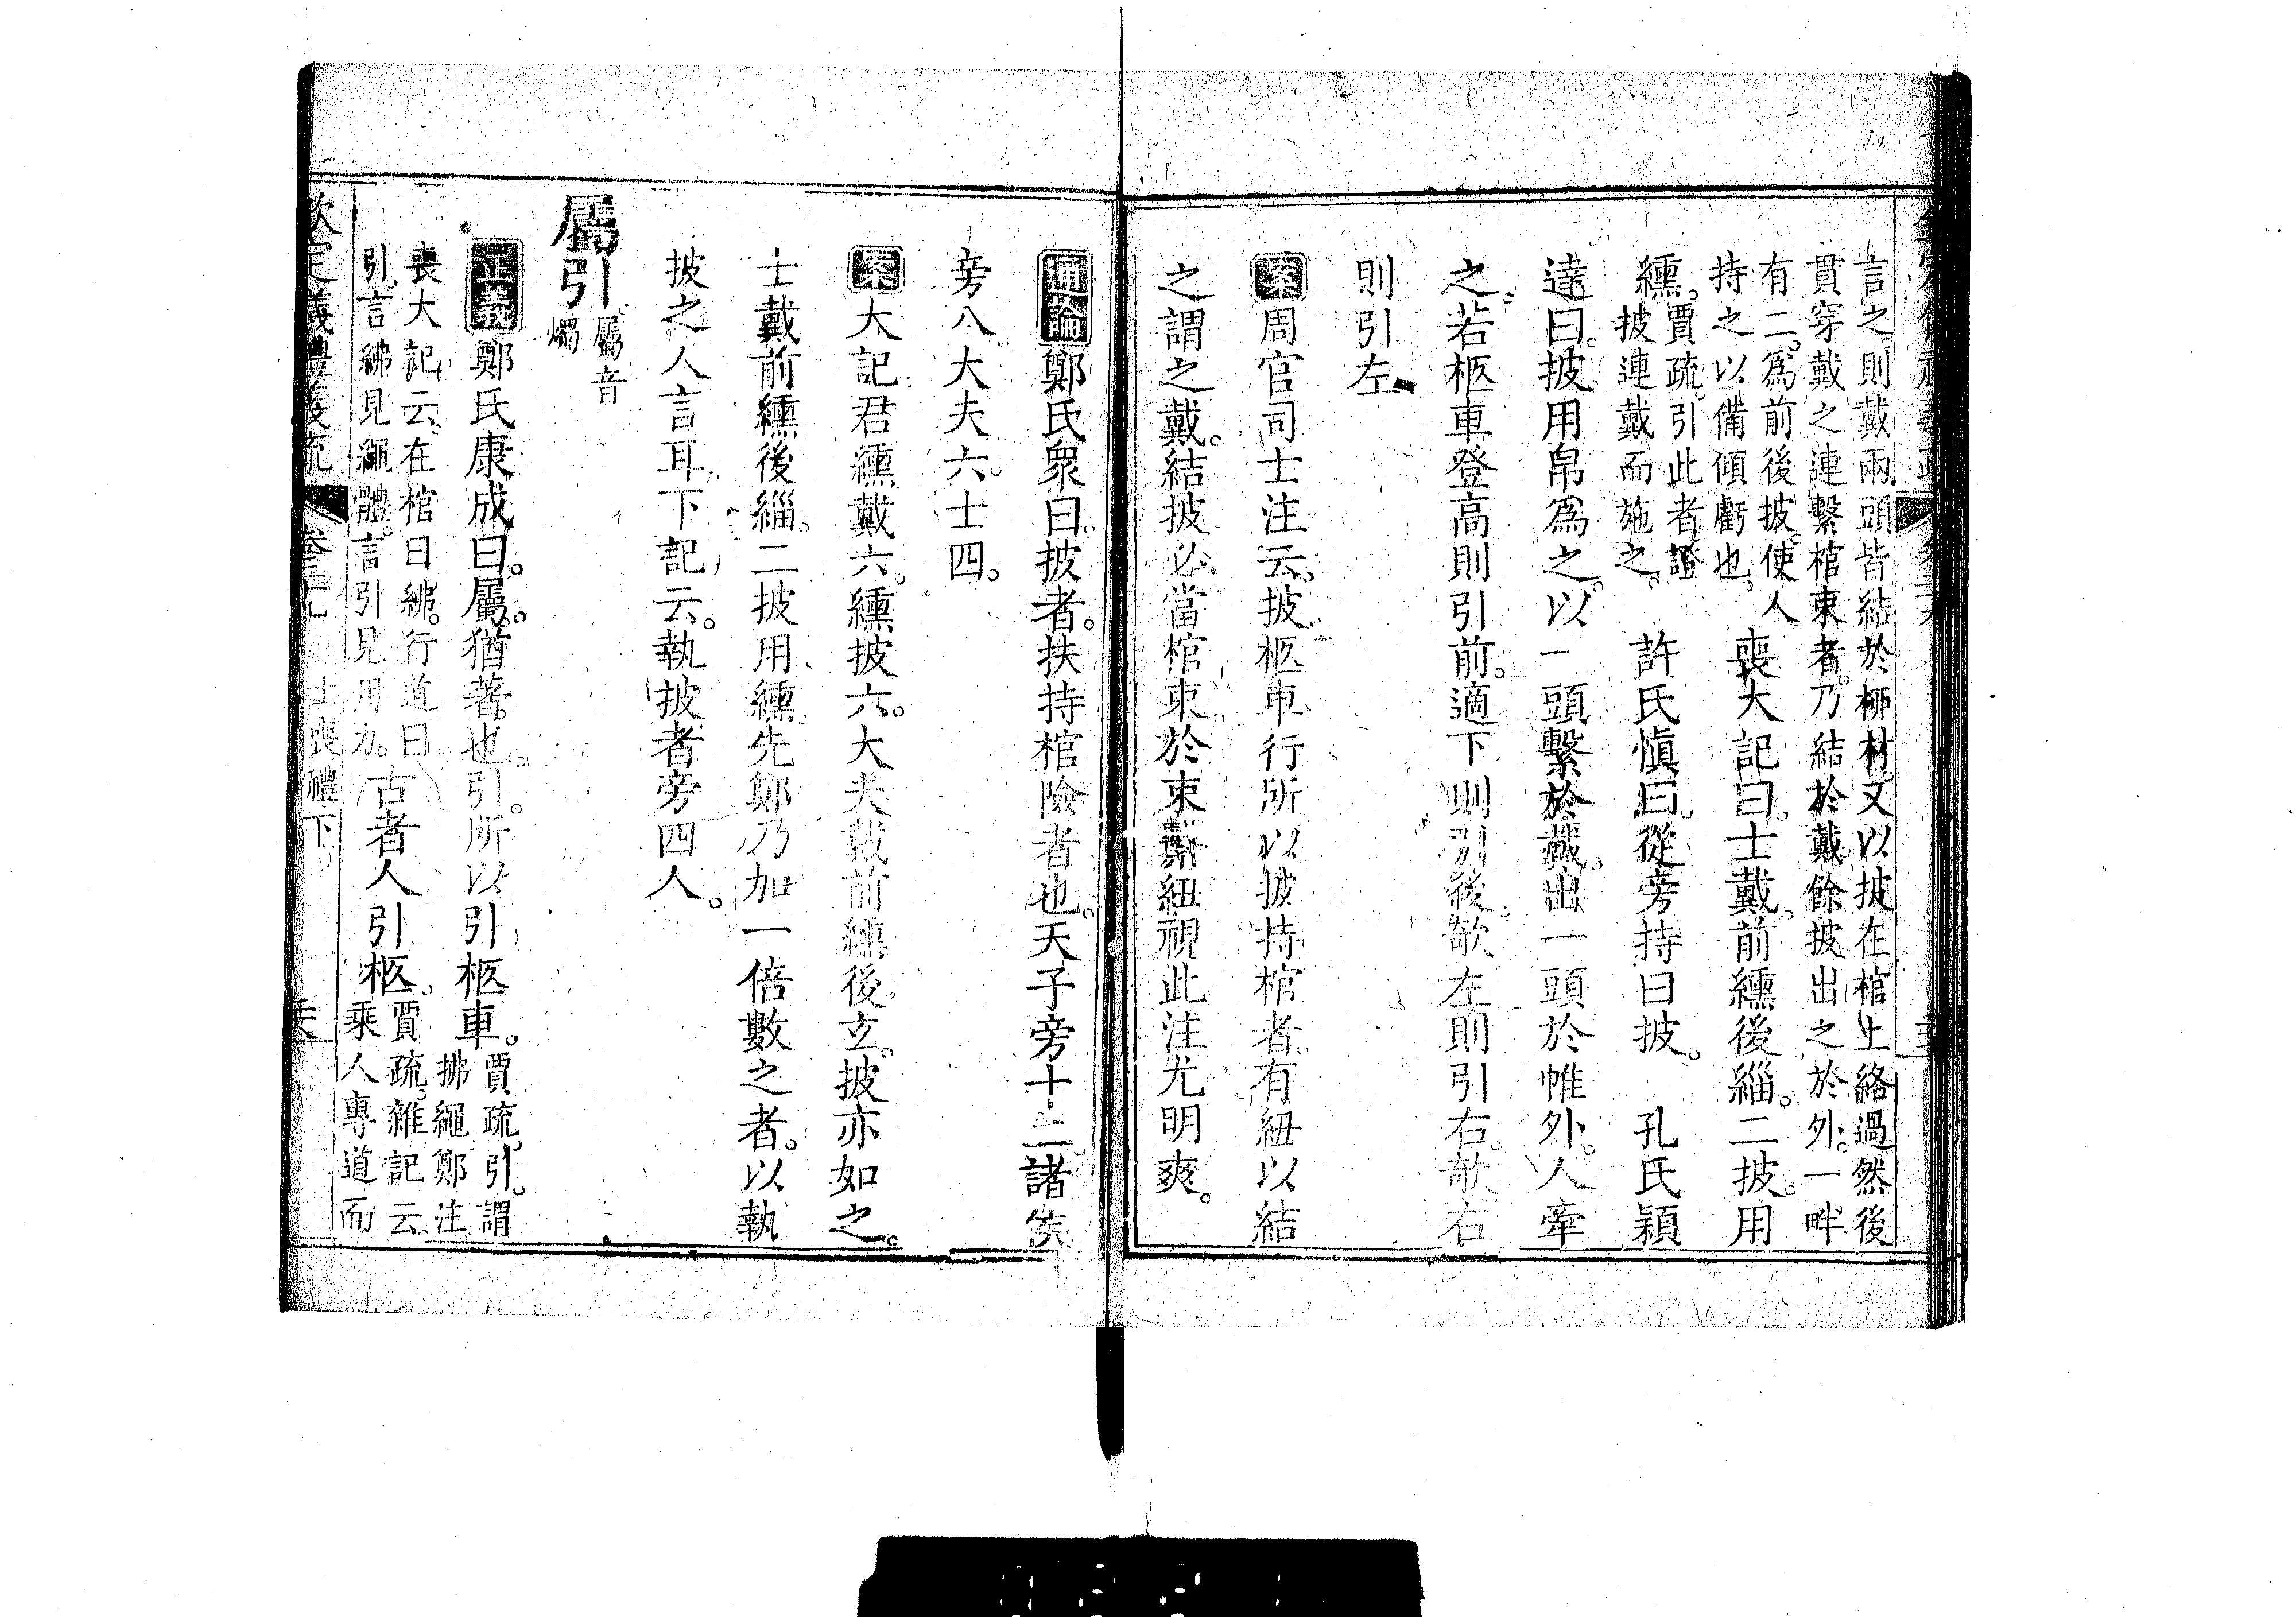 言之則戴兩頭皆結於柳材又以披在棺上絡過然後
貫穿戴之連繫棺束者乃結於戴餘披出之於外一畔
有二爲前後披使人
持之以備傾虧也
喪大記曰士戴前纁後緇二披用
纁
賈疏引此者證
披連戴而施之
許氏愼曰從旁持曰披 孔氏穎
達曰披用帛爲之以一頭繫於戴出一頭於帷外人牽
之若柩車登高則引前適下則引後欹左則引右欹右
則引左
案周官司士注云披柩車行所以披持棺者有紐以結
之謂之戴結披必當棺束於束繫紐視此注尤明爽
通論鄭氏眾曰披者扶持棺險者也天子旁十二諸侯
旁八大夫六士四
案大記君纁戴六纁披六大夫戴前纁後玄披亦如之
士戴前纁後緇二披用纁先鄭乃加一倍數之者以執
披之人言耳下記云執披者旁四人
屬引
屬音
燭
正義鄭氏康成曰屬猶著也引所以引柩車
賈疏引謂
拂繩鄭注
喪大記云在棺曰紼行道曰
引言紼見繩體言引見用力
古者人引柩
賈疏雜記云
乘人專道而
欽定義禮義疏 卷二十九 士喪禮下